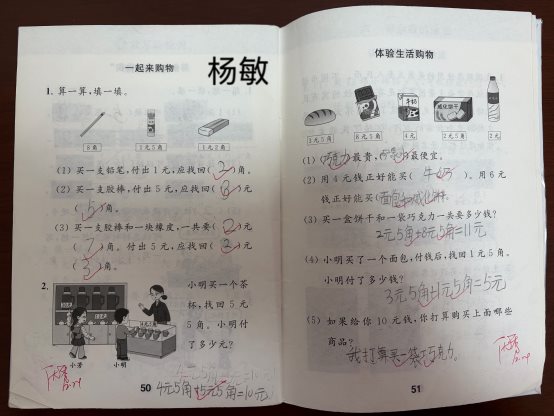 一起来购物
杨敏
1. 算一算,填一填。
8角
1元5角
1元2角
(1) 买一支铅笔,付出1元,应找回(2)角。
(2) 买一支胶棒,付出5元,应找回(3)元
(5)角。
(3) 买一支胶棒和一块橡皮,一共要(2)元
(7)角。付出5元,应找回(2)元
(3)角。
2.
小明买一个茶
杯,找回5元
5角。小明付
了多少元?
小芳
小明
50
4元5角+5元5角=10元
体验生活购物
3元5角
8元5角
4元
2元5角
2元
(1) (巧克力)最贵,
最便宜。
(2) 用4元钱正好能买(牛奶)。用6元
钱正好能买(面包和威化饼干)。
(3) 买一盒饼干和一袋巧克力一共要多少钱?
2元5角+8元5角=11元
(4) 小明买了一个面包,付钱后,找回1元5角。
小明付了多少钱?
3元5角+1元5角=5元
(5) 如果给你10元钱,你打算购买上面哪些
商品?
我打算买一袋巧克力。
51